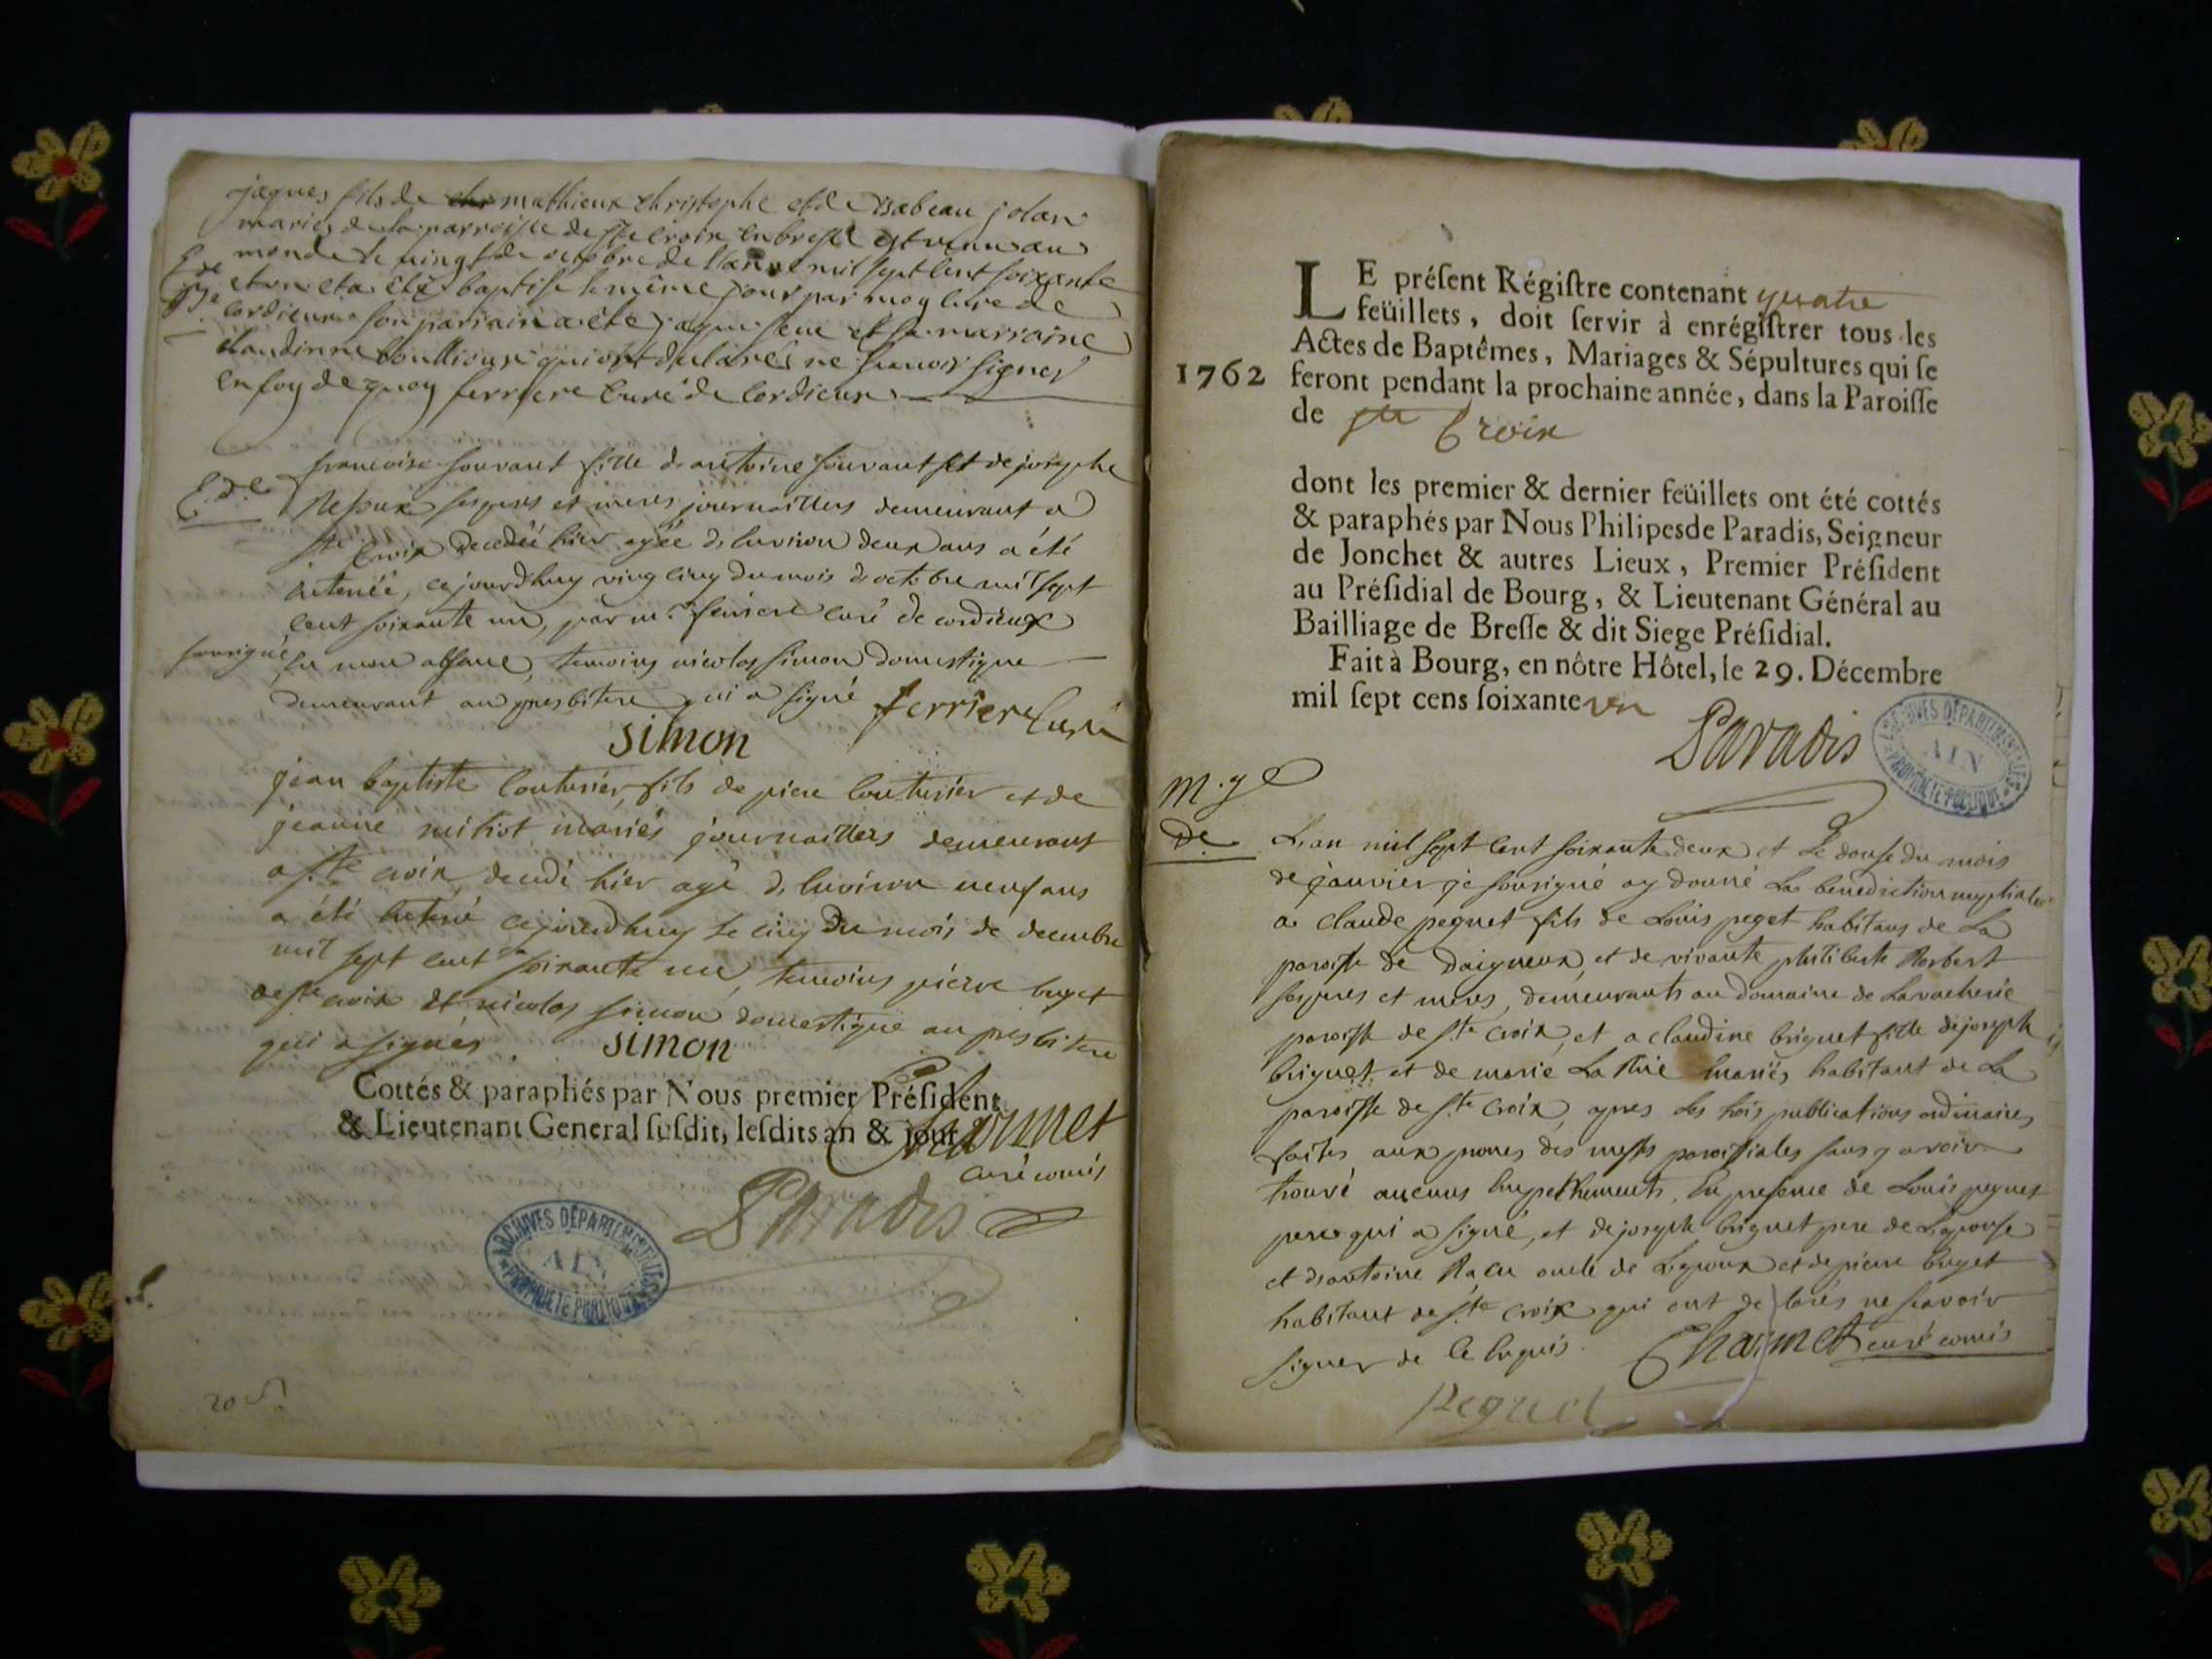 jacques fils de mathieux christophe et de isabeau jolan
mariés de la parroisse de Ste croix en bresse est venu au
monde le vingt de octobre de l'année mil sept cent soixante
et un et a été baptisé le même jour par moy curé de
cordieux son parrain a été jaque et sa marraine
claudinne qui ont declarés ne scavoir signer
en foy de quoy ferriere curé de Cordieux
francoise souvant fille d'antoine souvant et de josephe
B.de
ses peres et meres journailliers demeurant a
Ste Croix decedée hier agée d'environ deux ans a été
enterrée, cejourd'huy vingt cinq du mois d'octobre mil sept
cent soixante un, par mr. ferriere curé de cordieux
soussigné, en mon absence, temoins nicolas simon domestique
demeurant au presbitere qui a signé ferriere Curé
simon
jean baptiste Couturier fils de piere couturier et de
jeanne mariés journailliers demeurant
a Ste croix, decedé hier agé d'environ neuf ans
a été enterré cejourdhuy le cinq du mois de decembre
mil sept cent soixante un, temoins pierre buget
de Ste croix et nicolas simon domestique au presbitere
qui a signés simon
Cottés & paraphés par Nous premier Préſident
& Lieutenant General ſuſdit, leſdits an & jour
Charmet
curé comis
Paradis
ARCHIVES DÉPARTEMENTALES
AIN
PROPRIÉTÉ PUBLIQUE
LE préſent Régiſtre contenant quatre
feüillets, doit ſervir à enrégiſtrer tous les
Actes de Baptêmes, Mariages & Sépultures qui ſe
1762 feront pendant la prochaine année, dans la Paroiſſe
de Ste Croix
dont les premier & dernier feüillets ont été cottés
& paraphés par Nous Philipesde Paradis, Seigneur
de Jonchet & autres Lieux, Premier Préſident
au Préſidial de Bourg, & Lieutenant Général au
Bailliage de Breſſe & dit Siege Préſidial.
Fait à Bourg, en nôtre Hôtel, le 29. Décembre
mil ſept cens ſoixante un
Paradis
ARCHIVES DÉPARTEMENTALES
AIN
PROPRIÉTÉ PUBLIQUE
M.ge
De
L'an mil sept cent soixante deux et le douse du mois
de janvier je sousigné ay donné La benediction nuptiale
a claude peguet fils de Louis peget habitans de La
paroisse de Daigneux, et de vivante philiberte Robert
ses peres et meres, demeurants au domaine de Lavacherie
paroisse de Ste croix, et a claudine briguet fille de joseph
briguet et de marie mariés habitant de La
paroisse de Ste Croix, apres Les trois publications ordinaires
faites aux prones des messes paroissiales sans y avoir
trouvé aucuns empechements, En presence de Louis peguet
pere qui a signé, et de joseph briguet pere de L'epouse
et d'antoine oncle de L'epoux et de pierre buget
habitant de Ste Croix qui ont declarés ne scavoir
signer de ce Enquis. Charmet curé comis
Peguet